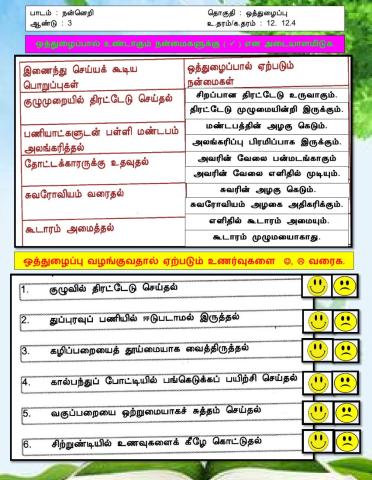 பாடம் : நன்னெறி
தொகுதி : ஒத்துழைப்பு
ஆண்டு : 3
உ.தரம்/க.தரம் : 12. 12.4
ஒத்துழைப்பால் உண்டாகும் நன்மைகளுக்கு ( ✓ ) என அடையாளமிடுக.
இணைந்து செய்யக் கூடிய பொறுப்புகள்
ஒத்துழைப்பால் ஏற்படும் நன்மைகள்
குழுமுறையில் திரட்டேடு செய்தல்
சிறப்பான திரட்டேடு உருவாகும்.
திரட்டேடு முழுமையின்றி இருக்கும்.
பணியாட்களுடன் பள்ளி மண்டபம் அலங்கரித்தல்
மண்டபத்தின் அழகு கெடும்.
அலங்கரிப்பு பிரமிப்பாக இருக்கும்.
தோட்டக்காரருக்கு உதவுதல்
அவரின் வேலை பன்மடங்காகும்
அவரின் வேலை எளிதில் முடியும்.
சுவரோவியம் வரைதல்
சுவரின் அழகு கெடும்.
சுவரோவியம் அழகை அதிகரிக்கும்.
கூடாரம் அமைத்தல்
எளிதில் கூடாரம் அமையும்.
கூடாரம் முழுமையாகாது.
ஒத்துழைப்பு வழங்குவதால் ஏற்படும் உணர்வுகளை ☺, ☹ வரைக.
1. குழுவில் திரட்டேடு செய்தல்
2. துப்புரவுப் பணியில் ஈடுபடாமல் இருத்தல்
3. கழிப்பறையைத் தூய்மையாக வைத்திருத்தல்
4. கால்பந்துப் போட்டியில் பங்கெடுக்கப் பயிற்சி செய்தல்
5. வகுப்பறையை ஒற்றுமையாகச் சுத்தம் செய்தல்
6. சிற்றுண்டியில் உணவுகளைக் கீழே கொட்டுதல்